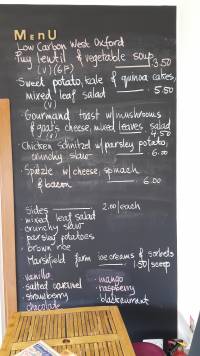 MENU
Low Carbon West Oxford
Puy lentil & vegetable soup
(V) (GF) 3.50
Sweet potato, kale & quinoa cakes,
mixed leaf salad 5.50
(V)
Gourmand toast w/ mushrooms
& goats cheese, mixed leaves salad
(V) 4.50
Chicken schnitzel w/ parsley potato,
crunchy slaw 6.00
Spätzle w/ cheese, spinach
& bacon 6.00
Sides 2.00/each
• mixed leaf salad
• crunchy slaw
• parsley potatoes
• brown rice
Marshfield farm ice creams & sorbets
1.50/scoop
vanilla • mango
• salted caramel • raspberry
strawberry • blackcurrant
chocolate